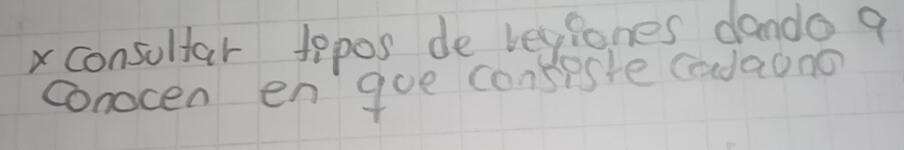 x consultar tipos de regiones dando a
conocen en que consiste cadauno